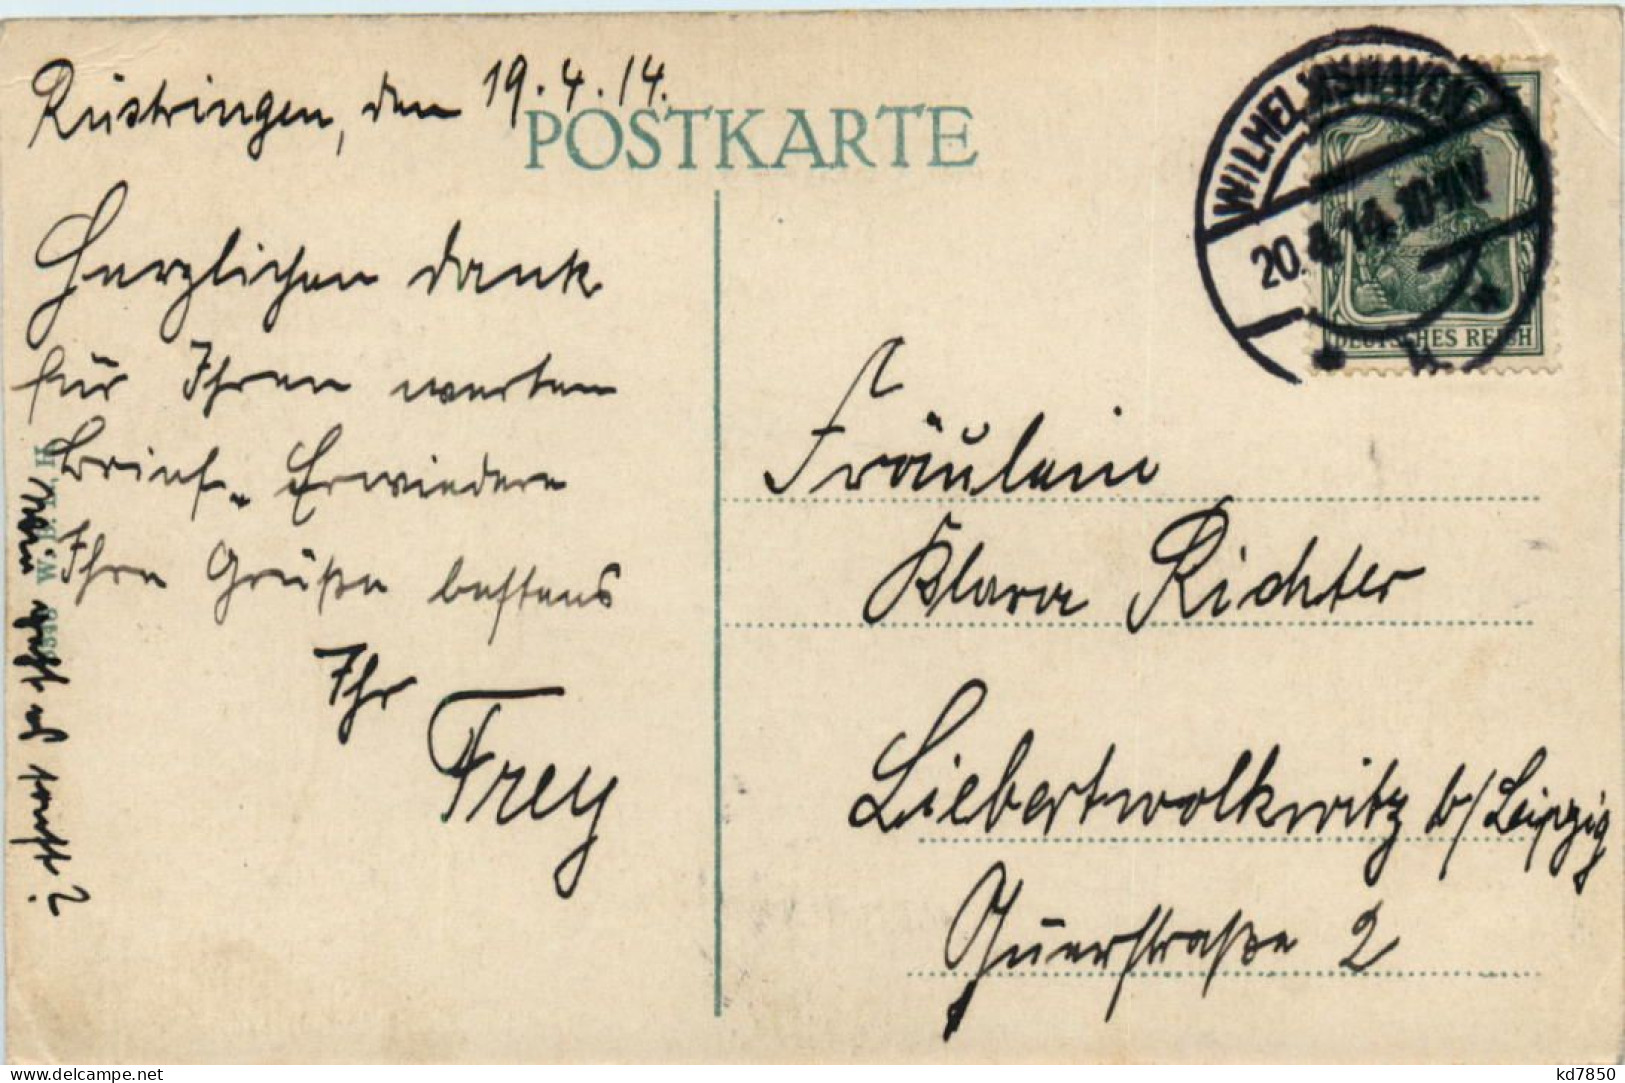 Rüstringen, den 19.4.14.
POSTKARTE
Herzlichen Dank
für Ihren werten
Brief. Erwiedere
Ihre Grüße bestens
Ihr
Frey
Wie geht es sonst?
WILHELMSHAVEN
20.4.14.10-11V
DEUTSCHES REICH
Fräulein
Klara Richter
Liebertwolkwitz b/Leipzig
Querstraße 2
delcampe.net
kd7850